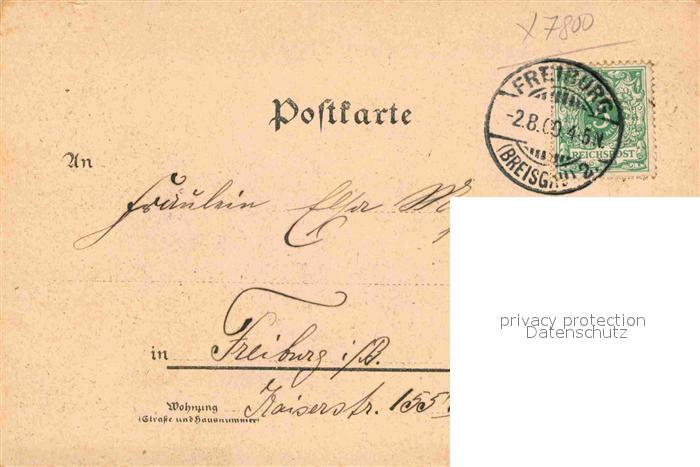 x 7800
FREIBURG
-2.8.00.4-5N.
(BREISGAU) 2.
5
REICHSPOST
Postkarte
An
Fräulein Elsa
privacy protection
Datenschutz
in Freiburg i/B.
Wohnung
(Straße und Hausnummer)
Kaiserstr. 155